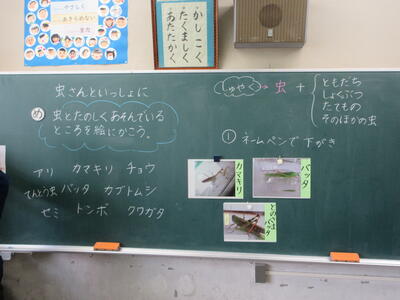 やさしく
あきらめない
かしこく
たくましく
あたたかく
虫さんといっしょに
め 虫とたのしくあそんでいる
ところを絵にかこう。
アリ カマキリ チョウ
てんとう虫 バッタ カブトムシ
セミ トンボ クワガタ
しゅやく→ 虫 +
ともだち
しょくぶつ
たてもの
そのほかの虫
① ネームペンで下がき
カマキリ
バッタ
とのさまバッタ